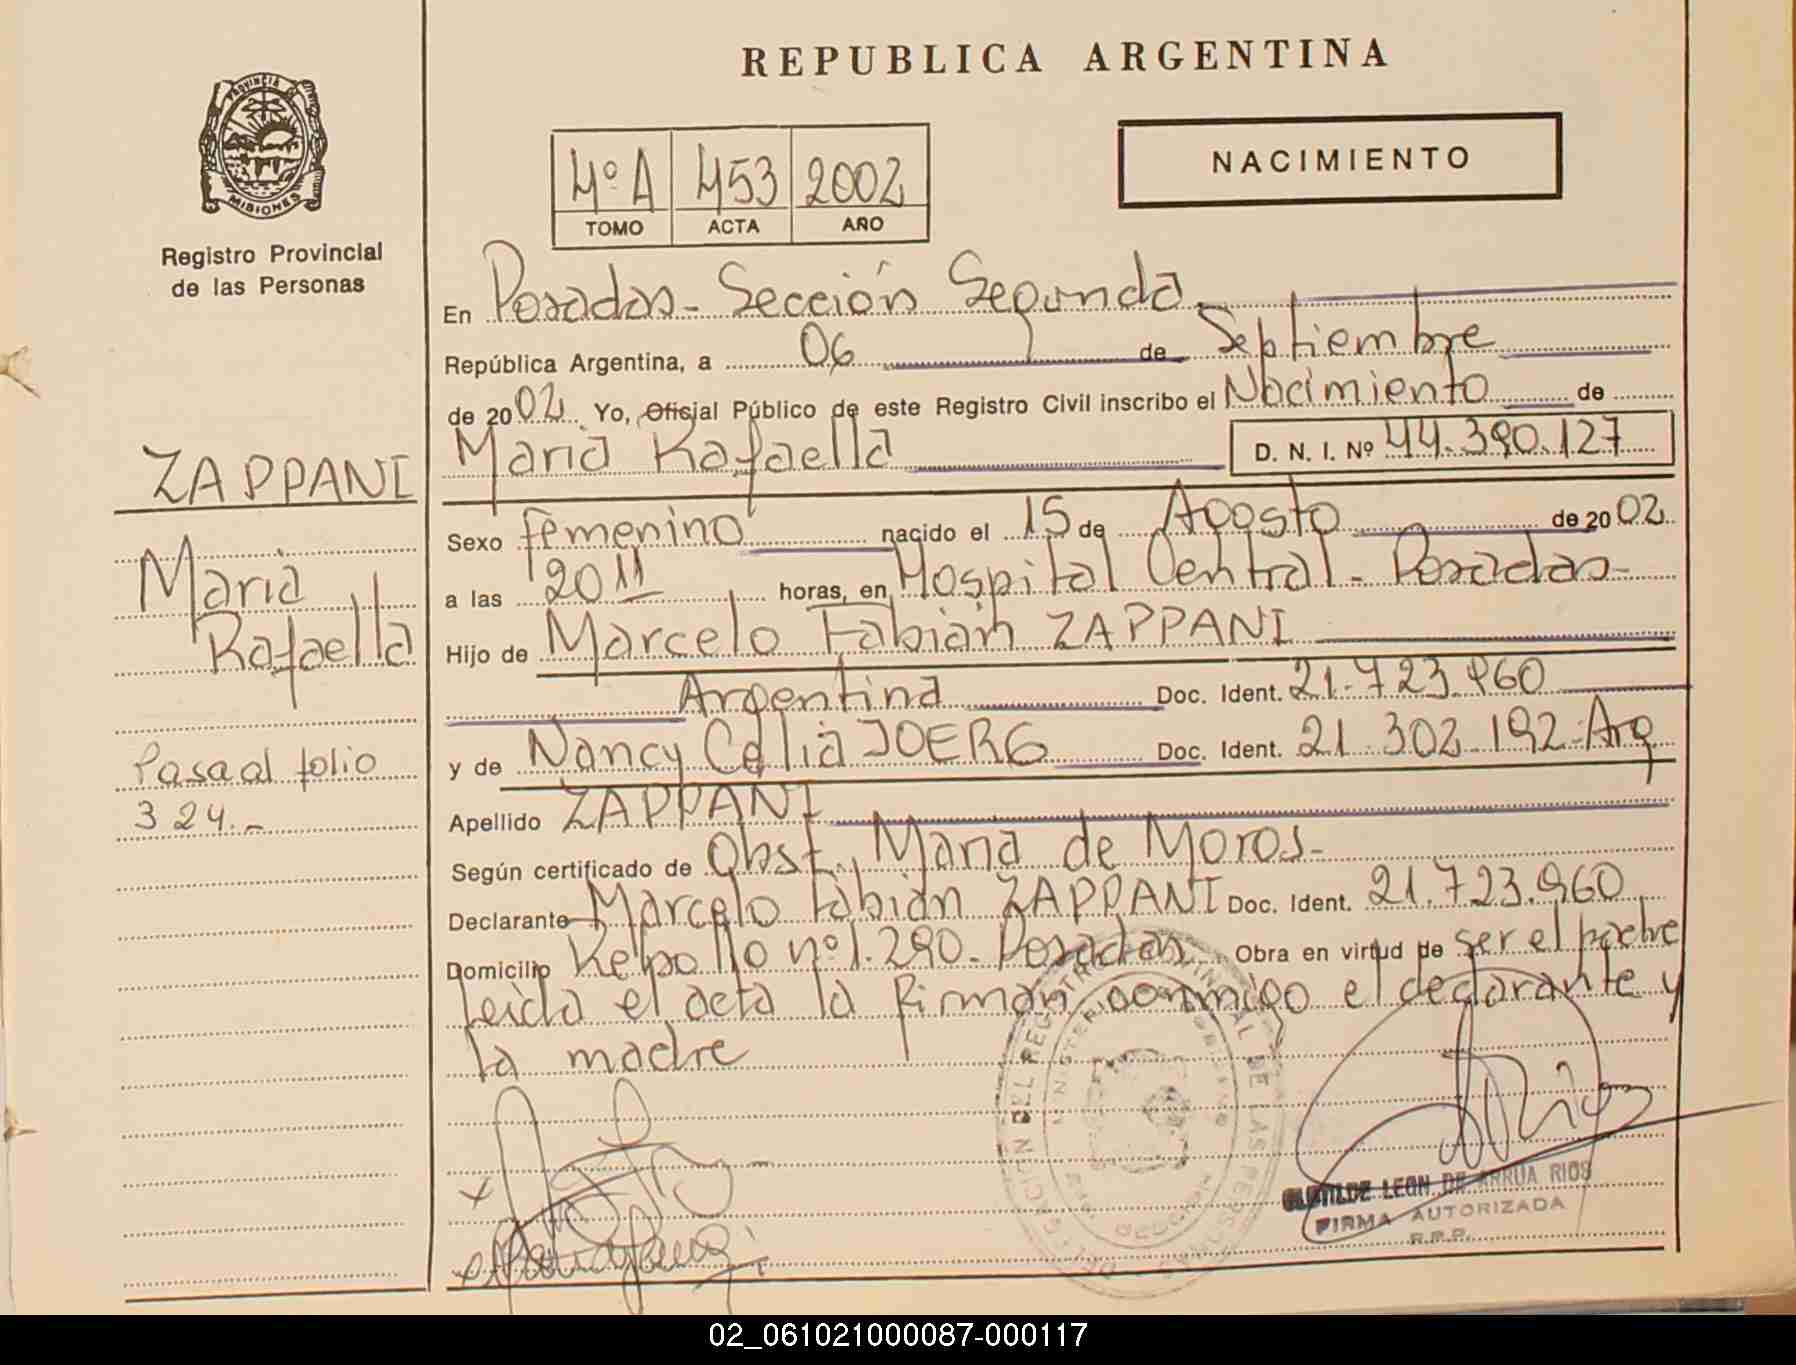 REPUBLICA ARGENTINA
PROVINCIA
MISIONES
Registro Provincial
de las Personas
4º A 453 2002
TOMO ACTA AÑO
NACIMIENTO
En Posadas - Sección Segunda
República Argentina, a 06 de Septiembre
de 2002 Yo, Oficial Público de este Registro Civil inscribo el Nacimiento de
Maria Rafaella D. N. I. Nº 44.390.127
Sexo femenino nacido el 15 de Agosto de 2002
a las 2011 horas, en Hospital Central - Posadas -
Hijo de Marcelo Fabián ZAPPANI
Argentina Doc. Ident. 21.723.960
y de Nancy Celia JOERG Doc. Ident. 21.302.192 - Arg
Apellido ZAPPANI
Según certificado de Obst. Maria de Moros -
Declarante Marcelo Fabián ZAPPANI Doc. Ident. 21.723.960
Domicilio Rebollo nº 1.290. Posadas Obra en virtud de ser el padre
Leida el acta la firman conmigo el declarante y
la madre
ZAPPANI
Maria
Rafaella
Pasa al folio
324.-
CLOTILDE LEON DE ARRUA RIOS
FIRMA AUTORIZADA
R.P.P.
02_061021000087-000117